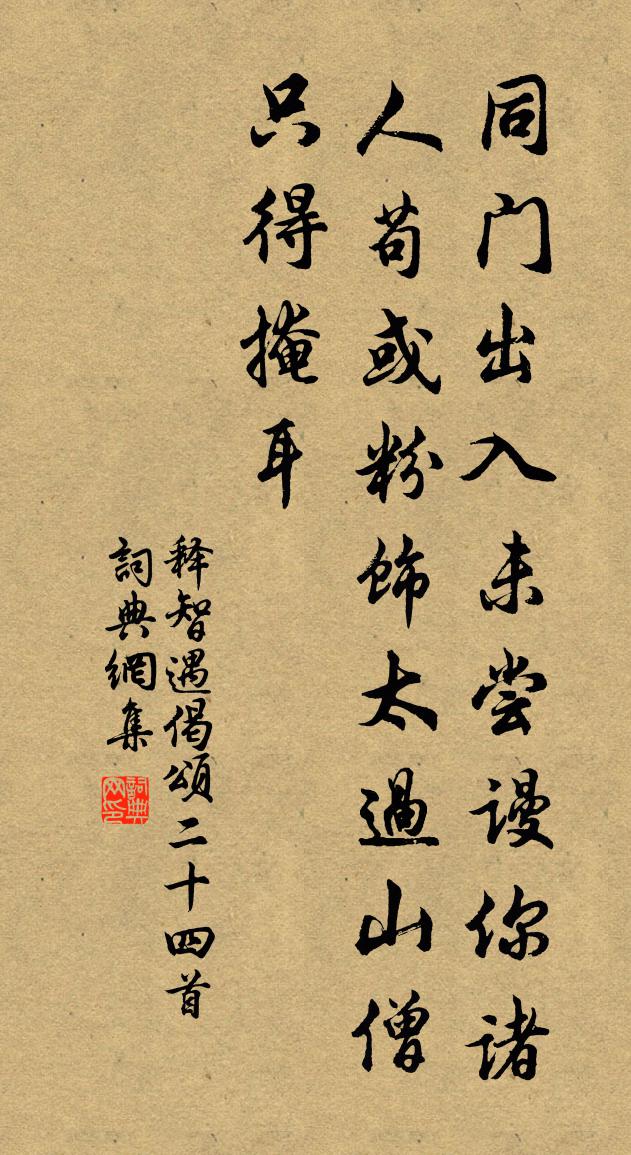 同门出入未尝谩你诸
人苟或粉饰太过山僧
只得掩耳
释智遇偈颂二十四首
詞典網集
詞典网印